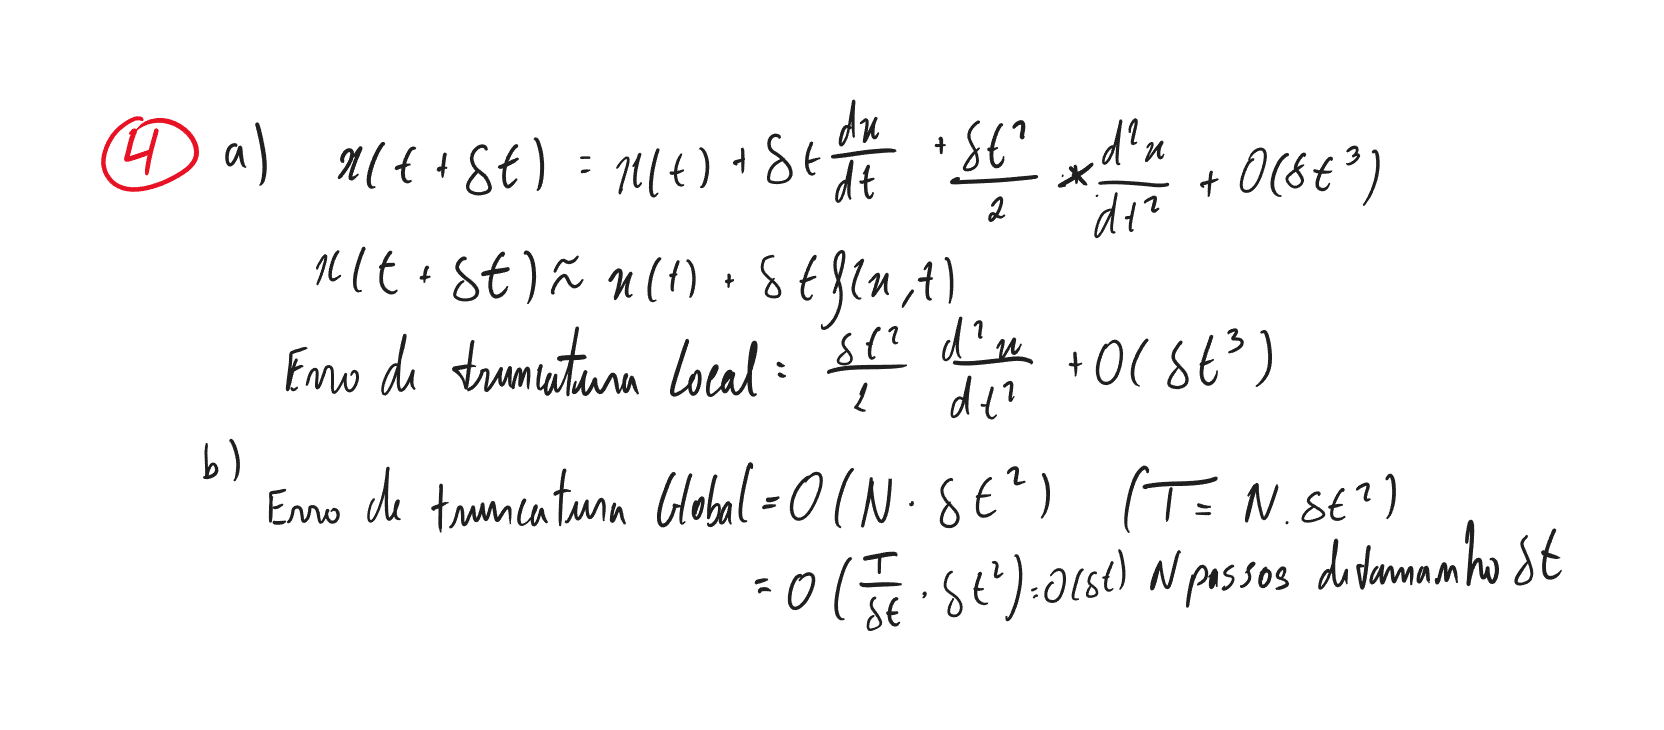 4 a) x(t + δt) = x(t) + δt dx/dt + δt²/2 * d²x/dt² + O(δt³)
x(t + δt) ≈ x(t) + δt f(x,t)
Erro de truncatura Local = δt²/2 d²x/dt² + O(δt³)
b)
Erro de truncatura Global = O(N · δt²) (T = N.δt²)
= O(T/δt · δt²) = O(δt) N passos de tamanho δt